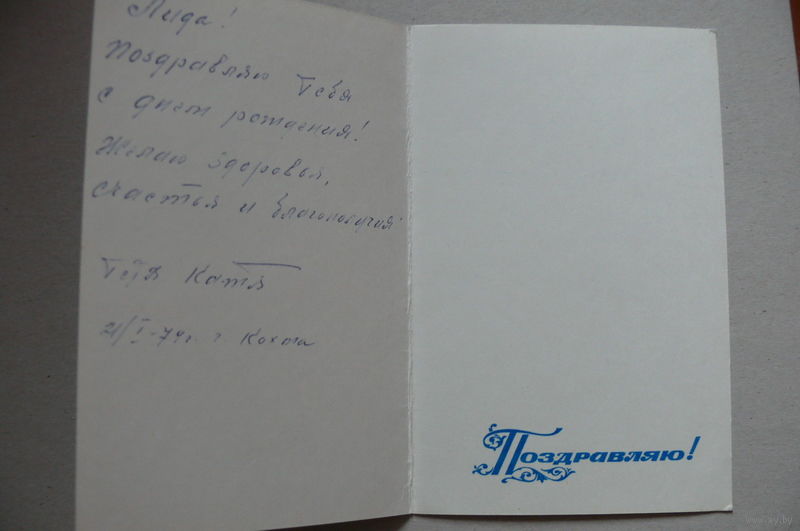 Лида!
Поздравляю Тебя
с днем рождения!
Желаю здоровья,
счастья и благополучия
Тётя Катя
21/I-79г. г. Кохма
Поздравляю!
www.ay.by